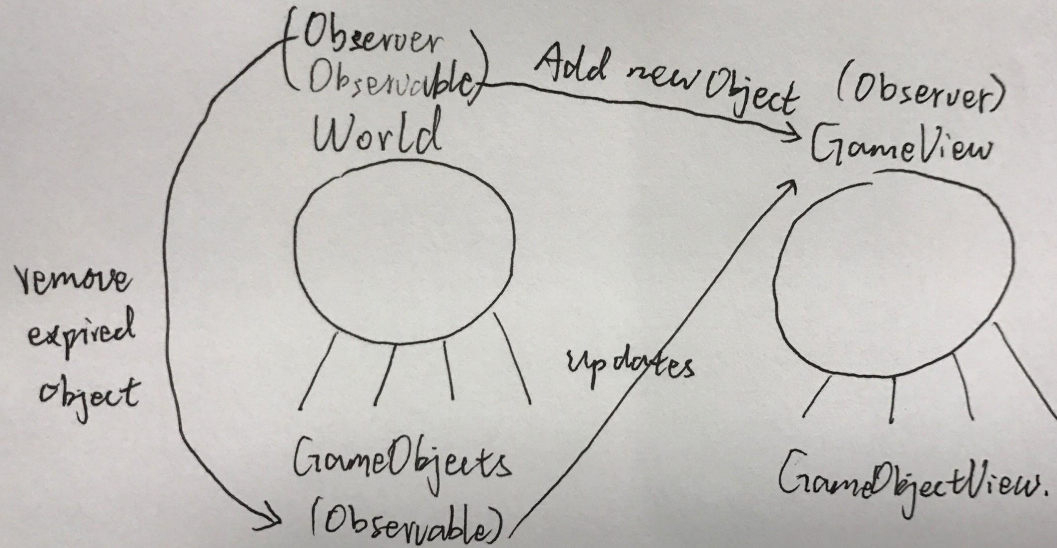 (Observer
Observable)
World
Add new Object
(Observer)
GameView
remove
expired
object
updates
GameObjects
(Observable)
GameObjectView.